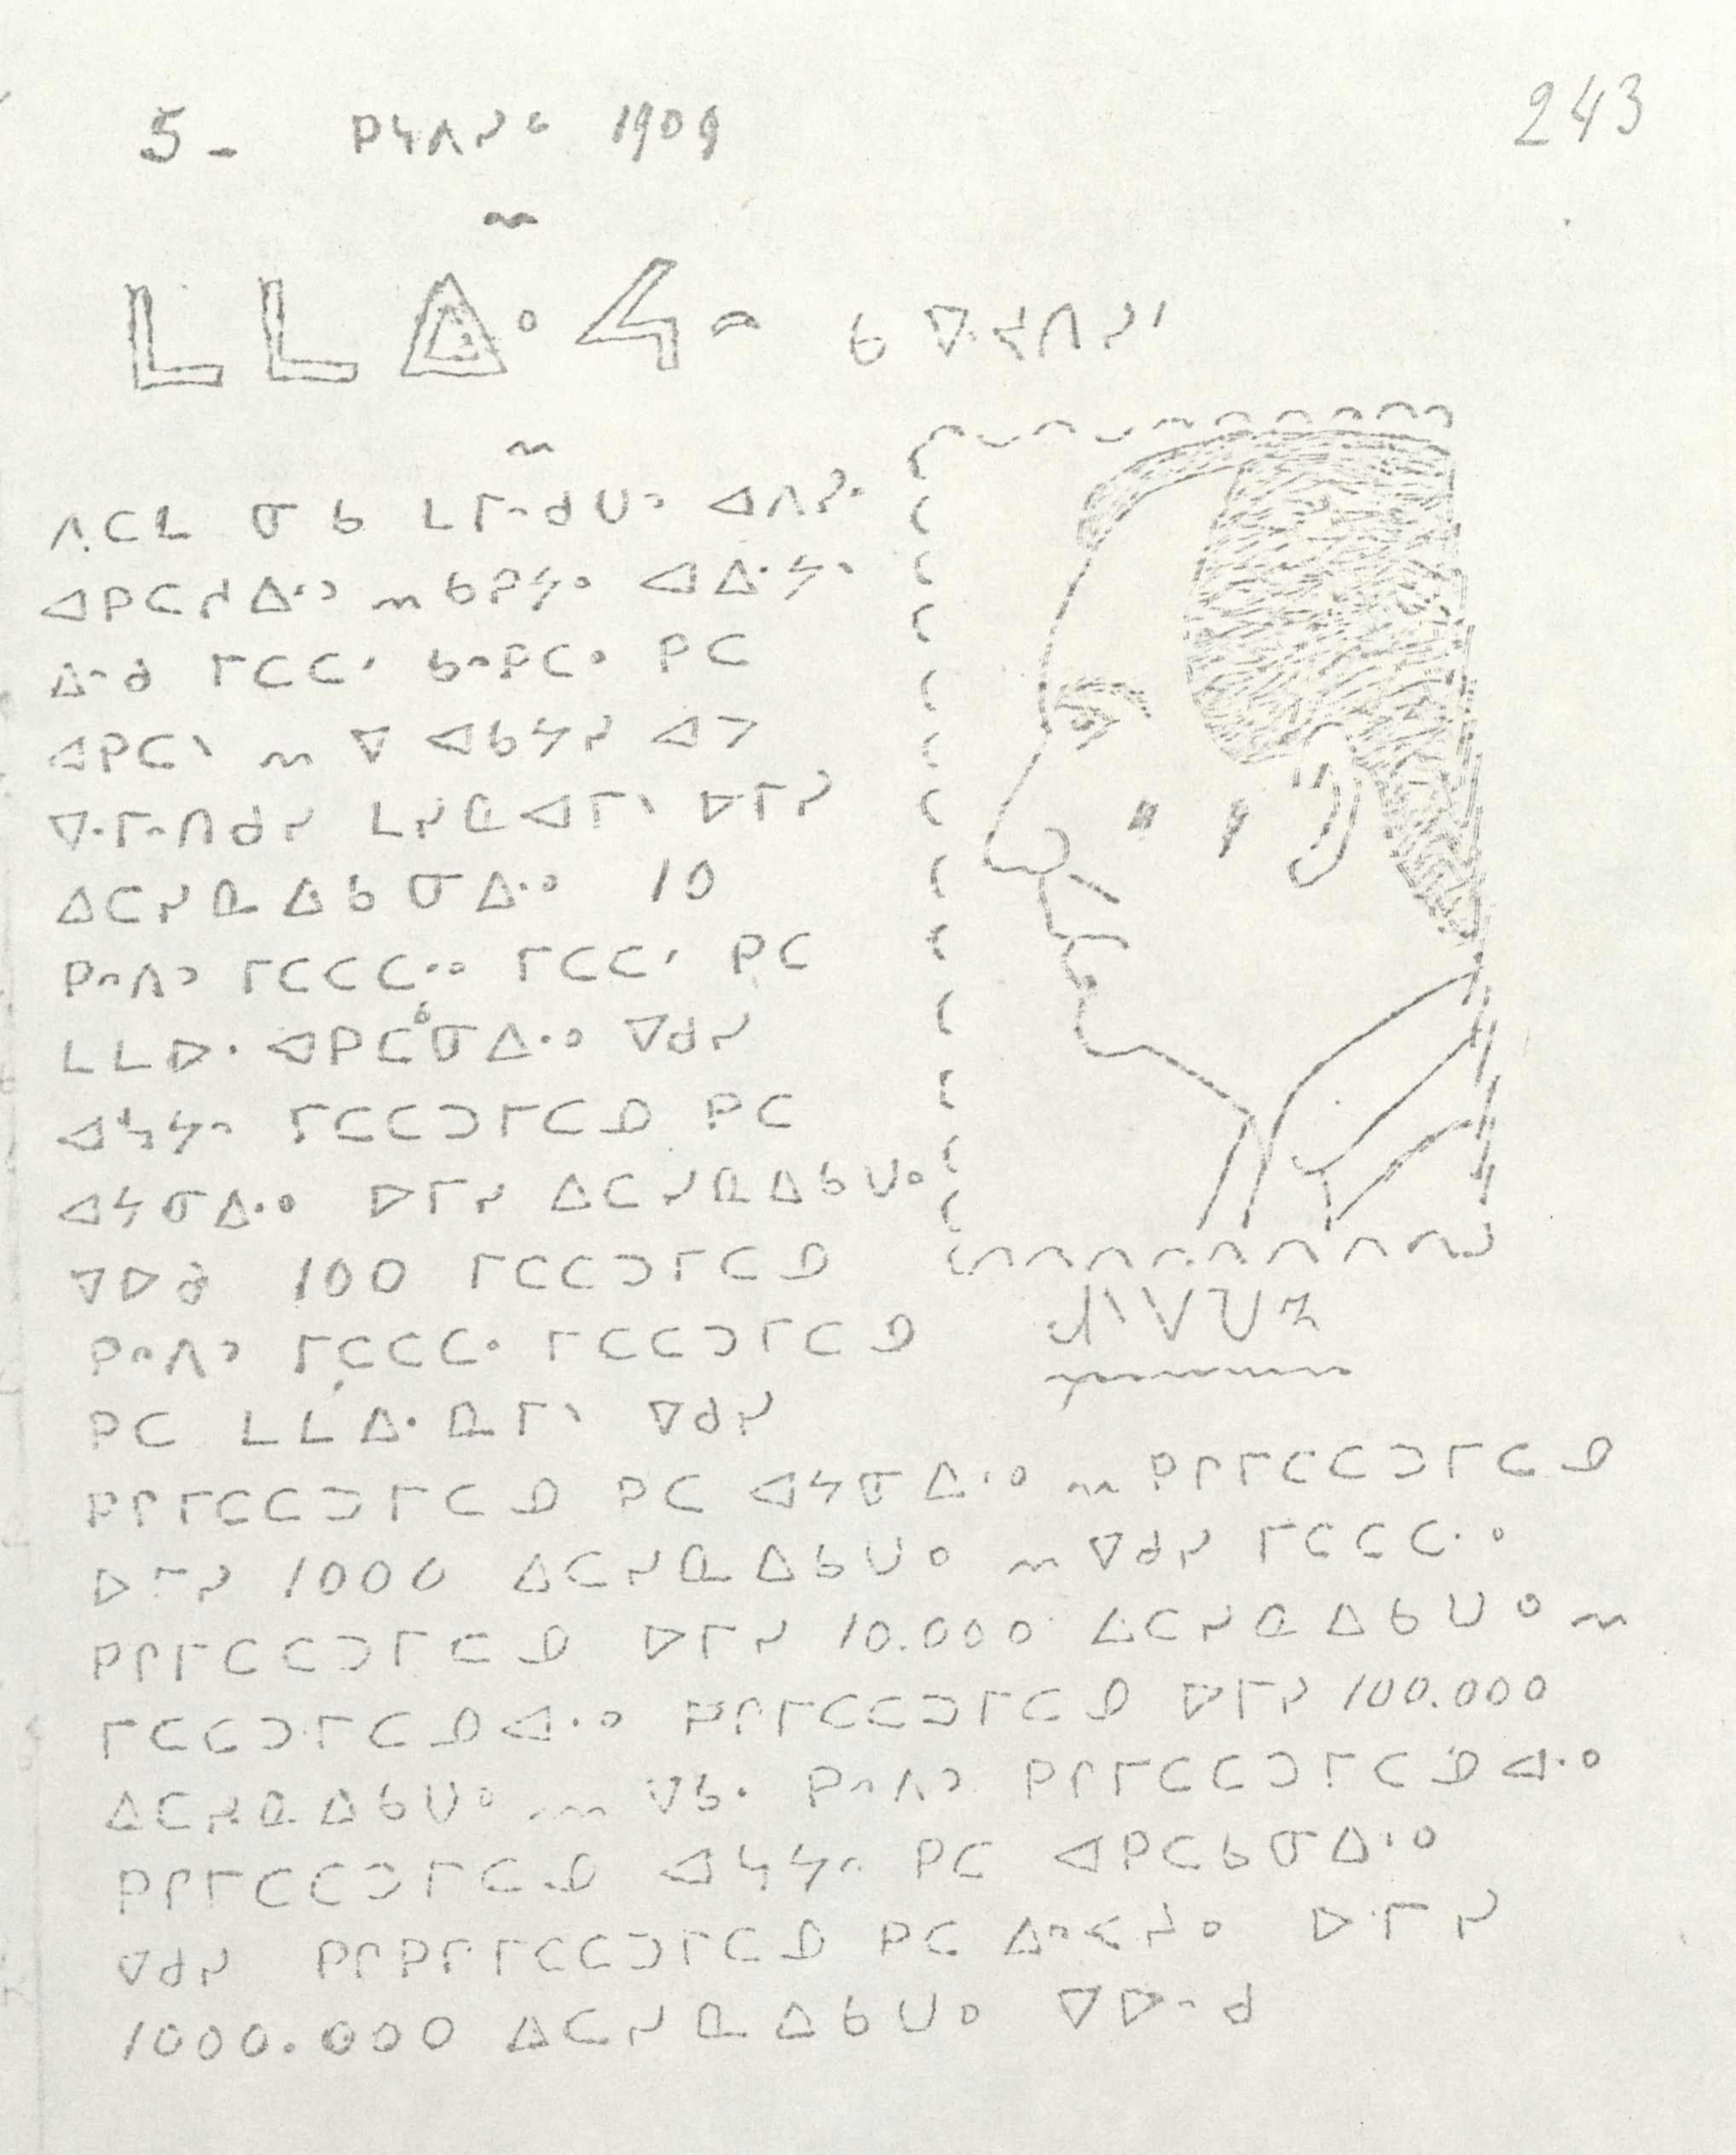 5 - ᑭᓴᐱᓯᒼ 1909
243
ᒪᒪᐃᐧᔭᐣ ᑲ ᐁᔮᑎᓯᐟ
ᐱᑕᒪ ᓂ ᑲ ᒪᒥᐢᑯᑌᐣ ᐊᐱᓯᐢ
ᐊᑭᑕᓱᐃᐧᐣ ~ ᑲᑭᔭᐤ ᐊᐃᐧᔭᐠ
ᐃᐢᑯ ᒥᑕᑕᐟ ᑲᐢᑭᑕᐤ ᑭᒋ
ᐊᑭᑕᐠ ~ ᐁ ᐊᑲᔭᓯ ᐊᔨ
ᐁᐧᒥᐢᑎᑯᓯ ᒪᓯᓇᐊᒥᐠ ᐅᒥᓯ
ᐃᑕᓯᓇᐃᑲᓂᐃᐧᐤ 10
ᑭᐢᐱᐣ ᒥᑕᑕᑕᐧᐤ ᒥᑕᑕᐟ ᑭᑕ
ᒪᒪᐅᐧ ᐊᑭᑕᑲᓂᐃᐧᐤ ᐁᑯᓯ
ᐊᓴᔭᐢ ᒥᑕᑕᑐᒥᑕᓄ ᑭᑕ
ᐊᔭᓂᐃᐧᐤ ᐅᒥᓯ ᐃᑕᓯᓇᐃᑲᑌᐤ
ᐁᐅᑯ 100 ᒥᑕᑕᑐᒥᑕᓄ
ᑭᐢᐱᐣ ᒥᑕᑕᑕᐧᐤ ᒥᑕᑕᑐᒥᑕᓄ
ᑭᑕ ᒪᒪᐃᐧᓇᒥᐠ ᐁᑯᓯ
ᑭᒋᒥᑕᑕᑐᒥᑕᓄ ᑭᑕ ᐊᔭᓂᐃᐧᐤ ~ ᑭᒋᒥᑕᑕᑐᒥᑕᓄ
ᐅᒥᓯ 1000 ᐃᑕᓯᓇᐃᑲᑌᐤ ~ ᐁᑯᓯ ᒥᑕᑕᑕᐧᐤ
ᑭᒋᒥᑕᑕᑐᒥᑕᓄ ᐅᒥᓯ 10.000 ᐃᑕᓯᓇᐃᑲᑌᐤ ~
ᒥᑕᑕᑐᒥᑕᓄᐊᐧᐤ ᑭᒋᒥᑕᑕᑐᒥᑕᓄ ᐅᒥᓯ 100.000
ᐃᑕᓯᓇᐃᑲᑌᐤ ~ ᐁᑲᐧ ᑭᐢᐱᐣ ᑭᒋᒥᑕᑕᑐᒥᑕᓄᐊᐧᐤ
ᑭᒋᒥᑕᑕᑐᒥᑕᓄ ᐊᓴᔭᐢ ᑭᑕ ᐊᑭᑕᑲᓂᐃᐧᐤ
ᐁᑯᓯ ᑭᒋᑭᒋᒥᑕᑕᑐᒥᑕᓄ ᑭᑕ ᐃᐢᐸᔨᐤ ᐅᒥᓯ
1000.000 ᐃᑕᓯᓇᐃᑲᑌᐤ ᐁᐅᐢᑯ